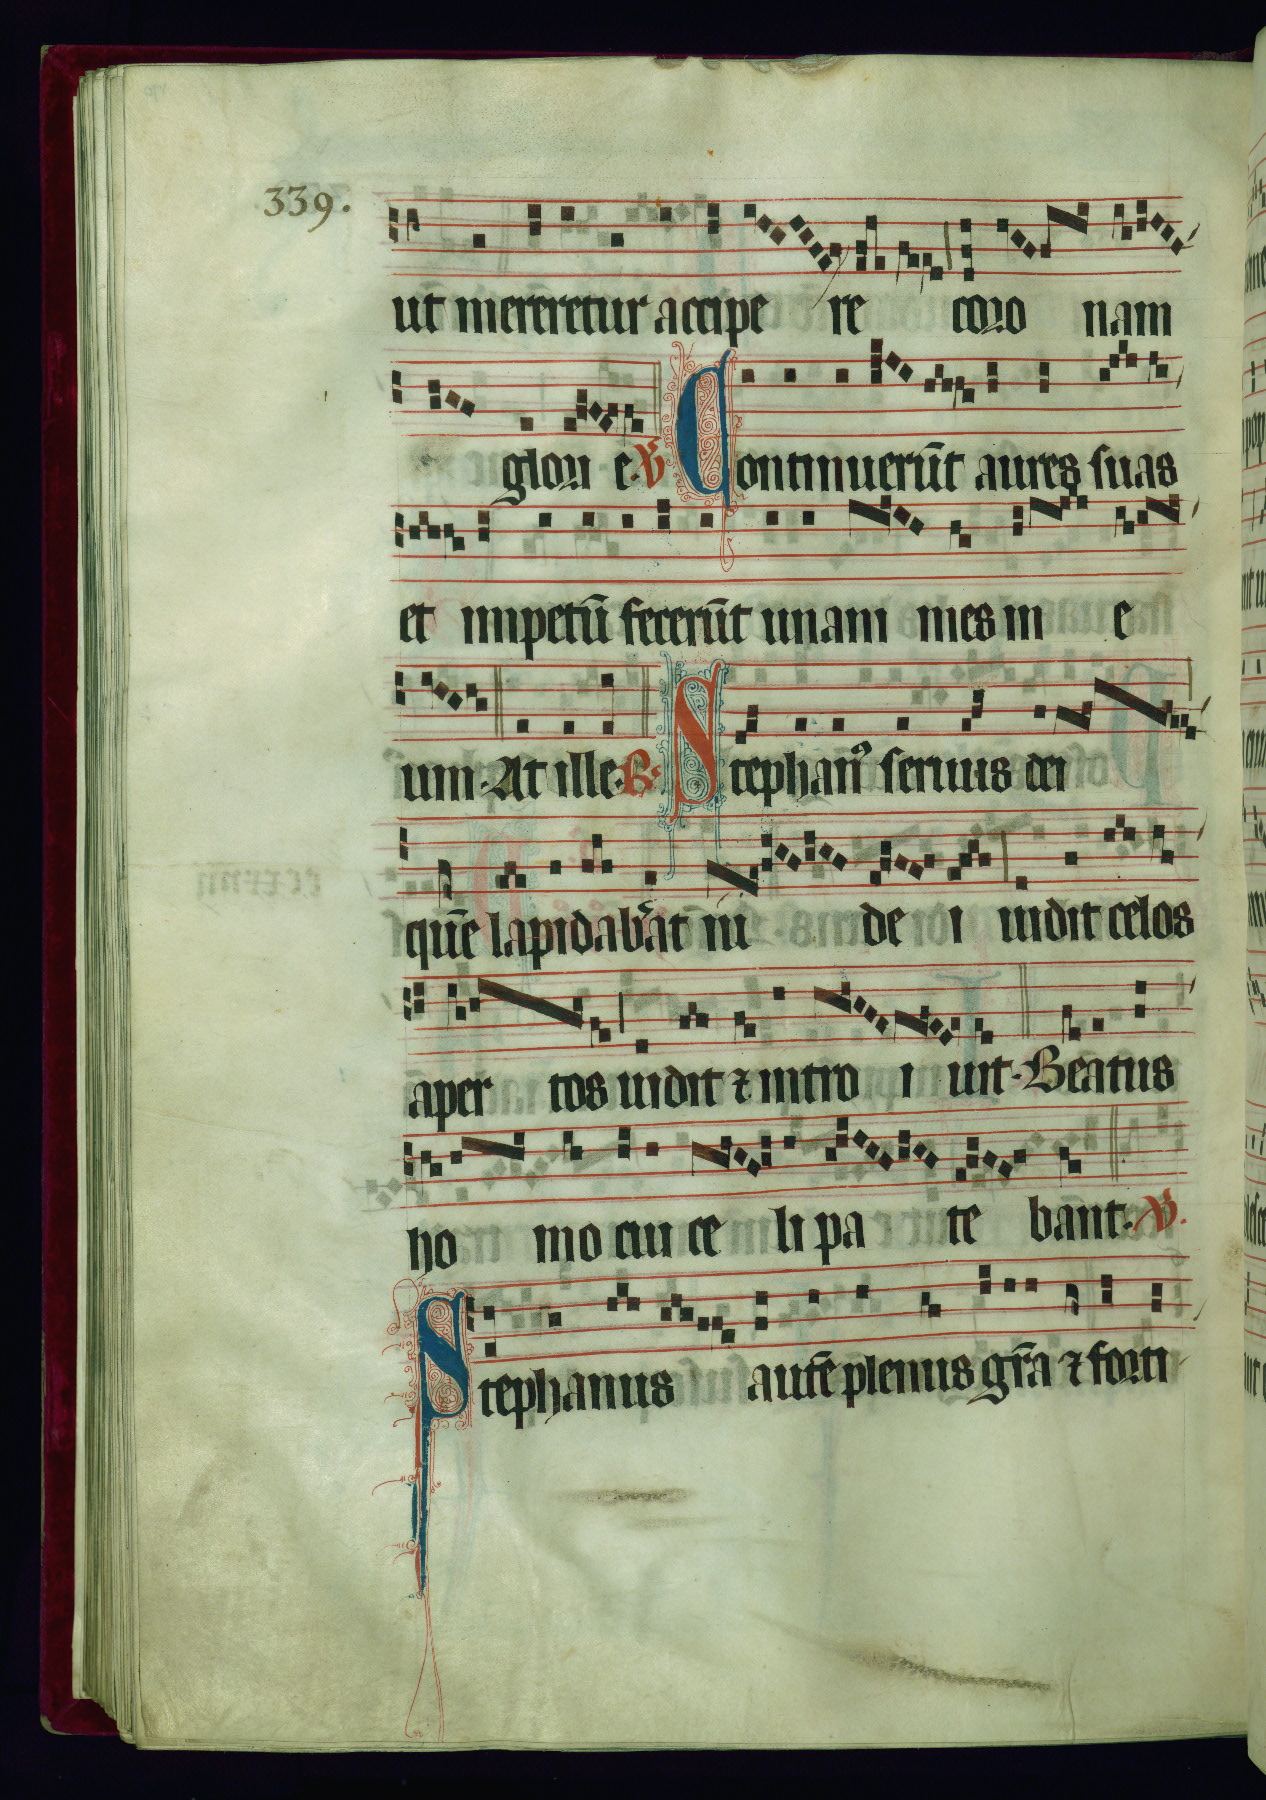 339.
ut mereretur accipe re coro nam
glori e. ℣ Continuerūt aures suas
et impetū fecerūt unani mes in e
um. At ille. ℟. Stephanꝰ seruus dei
quē lapidabāt iu de i uidit celos
aper tos uidit ⁊ intro i uit. Beatus
ho mo cui ce li pa te bant. ℣.
Stephanus autē plenus gr̄a ⁊ forti